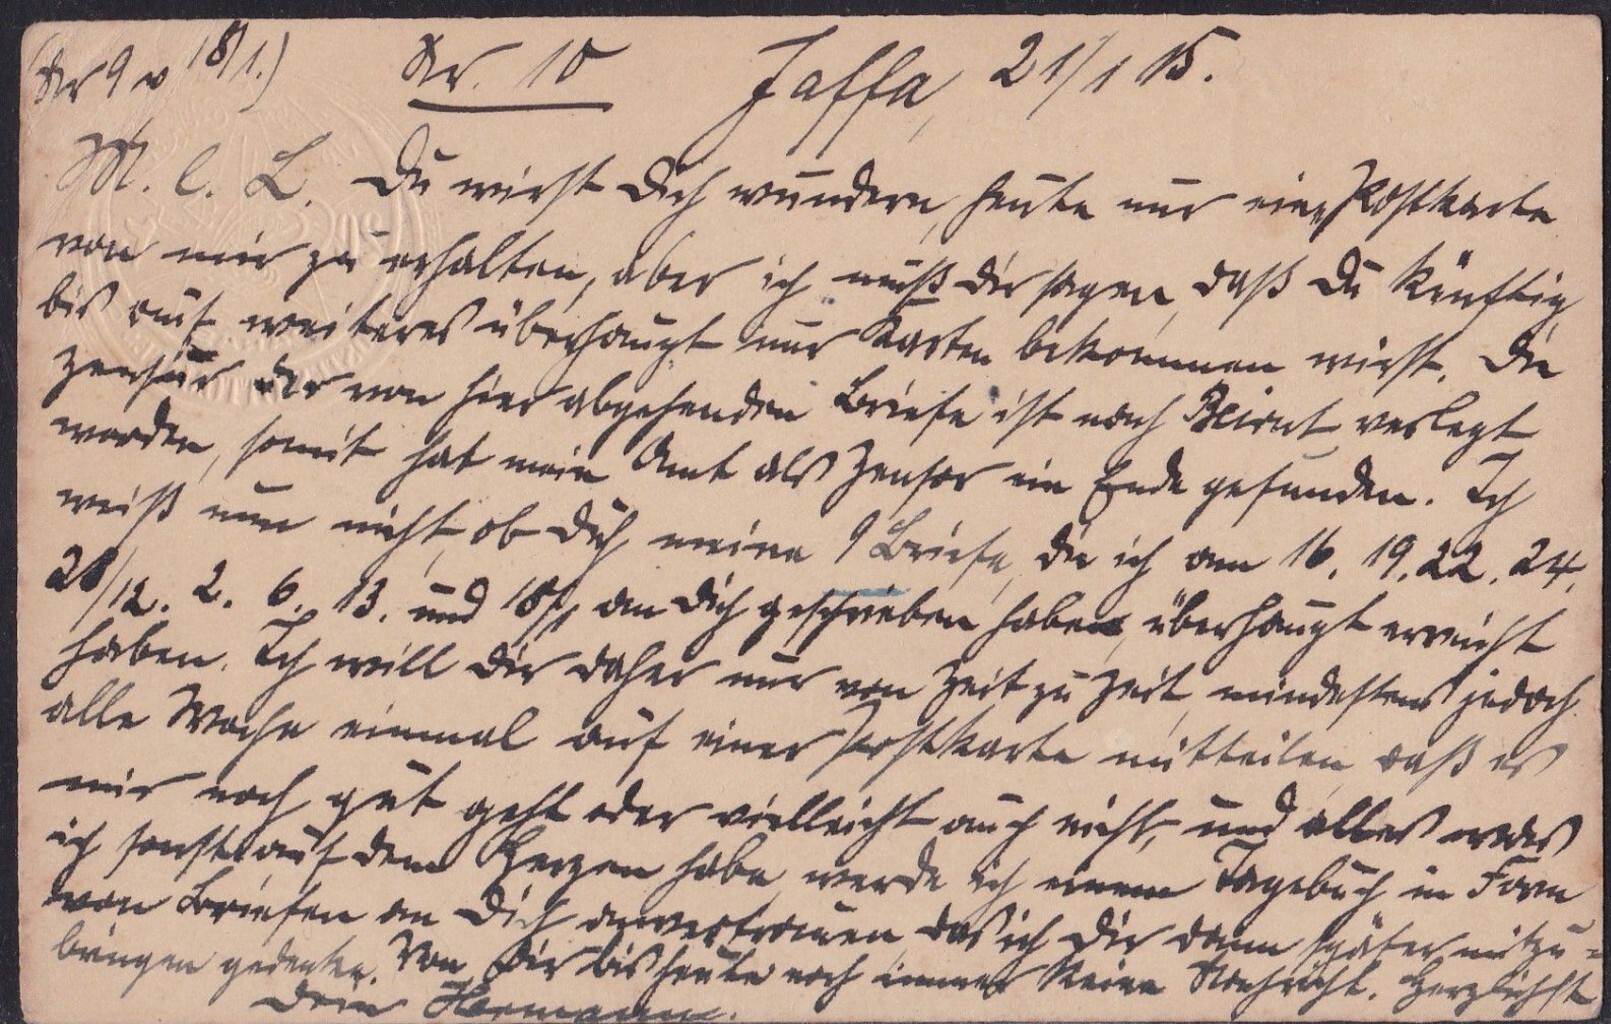 (Nr 9 v 18/1.) Nr. 10 Jaffa, 21/1 15.
M. l. L. Du wirst Dich wundern, heute nur eine Postkarte
von mir zu erhalten, aber ich muß Dir sagen, daß Du künftig
bis auf weiteres überhaupt nur Karten bekommen wirst. Die
Zensur der von hier abgehenden Briefe ist nach Beirut verlegt
worden, somit hat mein Amt als Zensor ein Ende gefunden. Ich
weiß nun nicht, ob Dich meine 9 Briefe, die ich am 16. 19. 22. 24.
28/12. 2. 6. 13. und 18/1 an Dich geschrieben habe, überhaupt erreicht
haben. Ich will Dir daher nur von Zeit zu Zeit, mindestens jedoch
alle Woche einmal auf einer Postkarte mitteilen, daß es
mir noch gut geht oder vielleicht auch nicht, und alles was
ich sonst auf dem Herzen habe, werde ich einem Tagebuch in Form
von Briefen an Dich anvertrauen, das ich Dir dann später mitzu-
bringen gedenke. Von Dir bis heute noch immer keine Nachricht. Herzlichst
Dein Hermann.